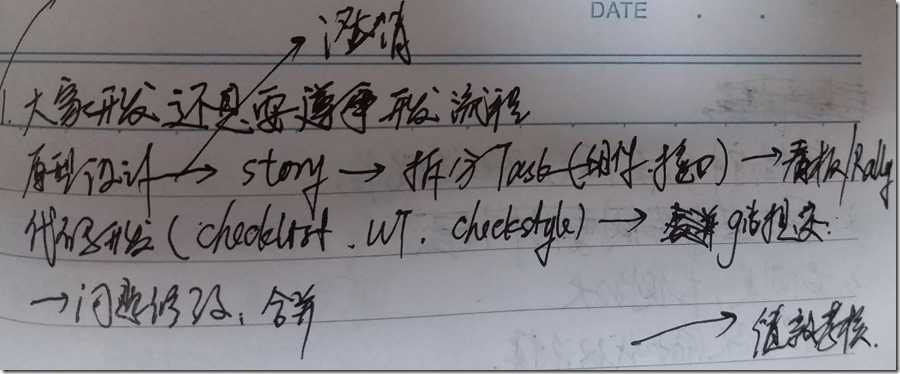 DATE
澄清
1. 大家开发还是要遵守开发流程
原型设计 → story → 拆分Task (组件.接口) → 看板/Rally
代码开发 (checklist . UT . checkstyle) → git提交.
→ 问题修改、合并
→ 绩效考核.